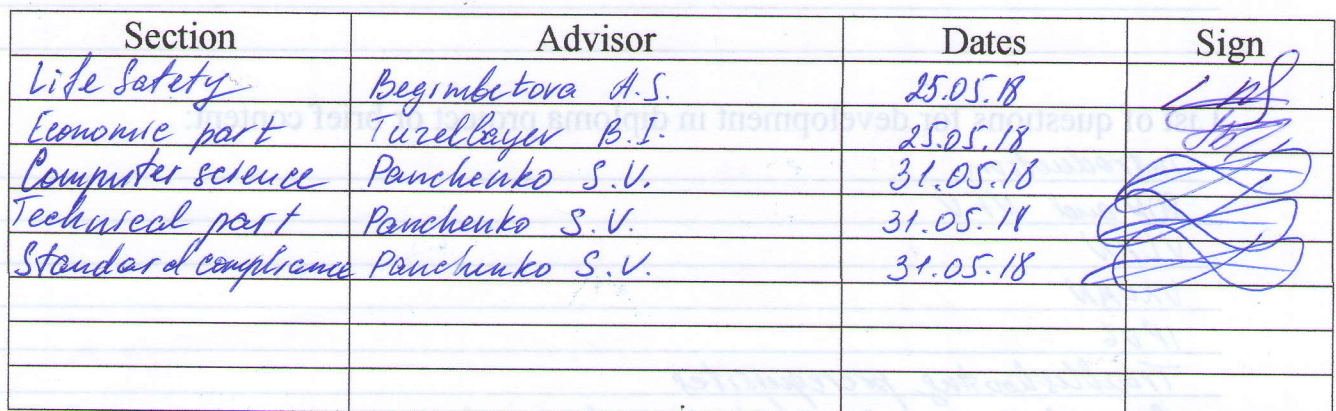 Section Advisor Dates Sign
Life Safety Begimbetova A.S. 25.05.18
Economic part Tuzelbayev B.I. 25.05.18
Computer science Panchenko S.V. 31.05.18
Technical part Panchenko S.V. 31.05.18
Standard compliance Panchenko S.V. 31.05.18